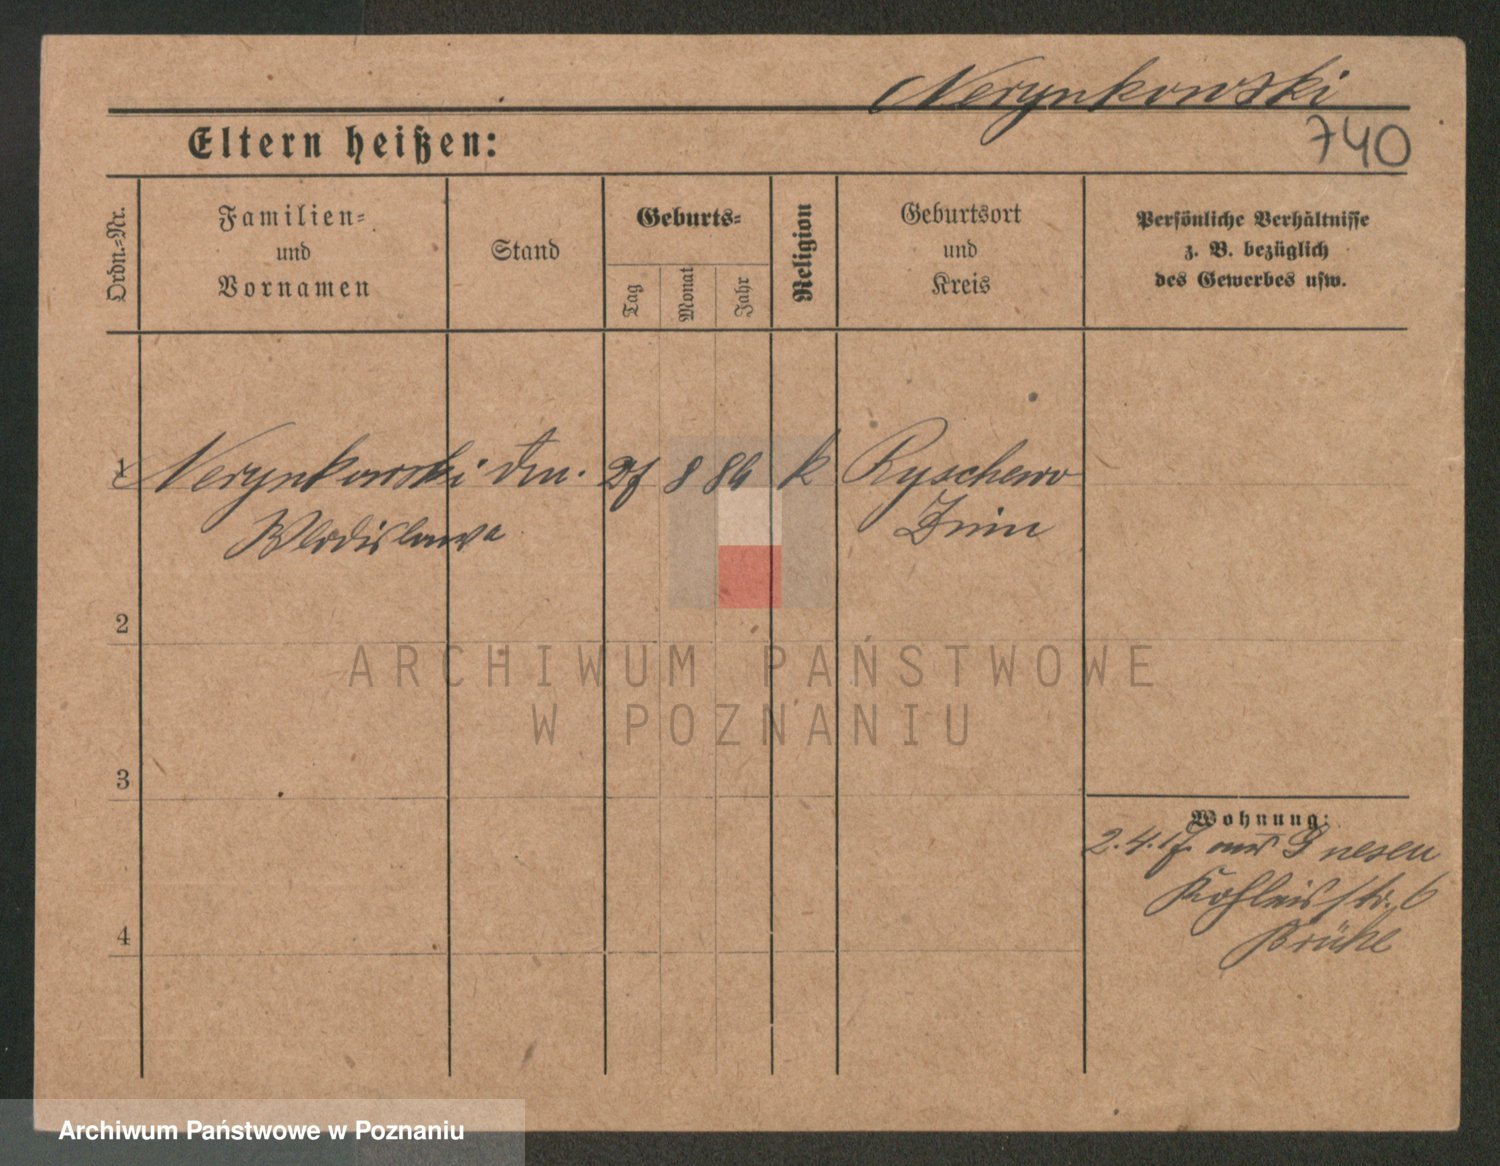 Nerynkowski
740
Eltern heißen:
Ordn.-Nr.
Familien-
und
Vornamen
Stand
Geburts-
Tag
Monat
Jahr
Religion
Geburtsort
und
Kreis
Persönliche Verhältnisse
z. B. bezüglich
des Gewerbes usw.
1 Nerynkowski 8 k Ryschewo
Wlodislawa Znin
2
ARCHIWUM PAŃSTWOWE
W POZNANIU
3
Wohnung:
2.4.17. aus Gnesen
str. 6
Brühl
4
Archiwum Państwowe w Poznaniu